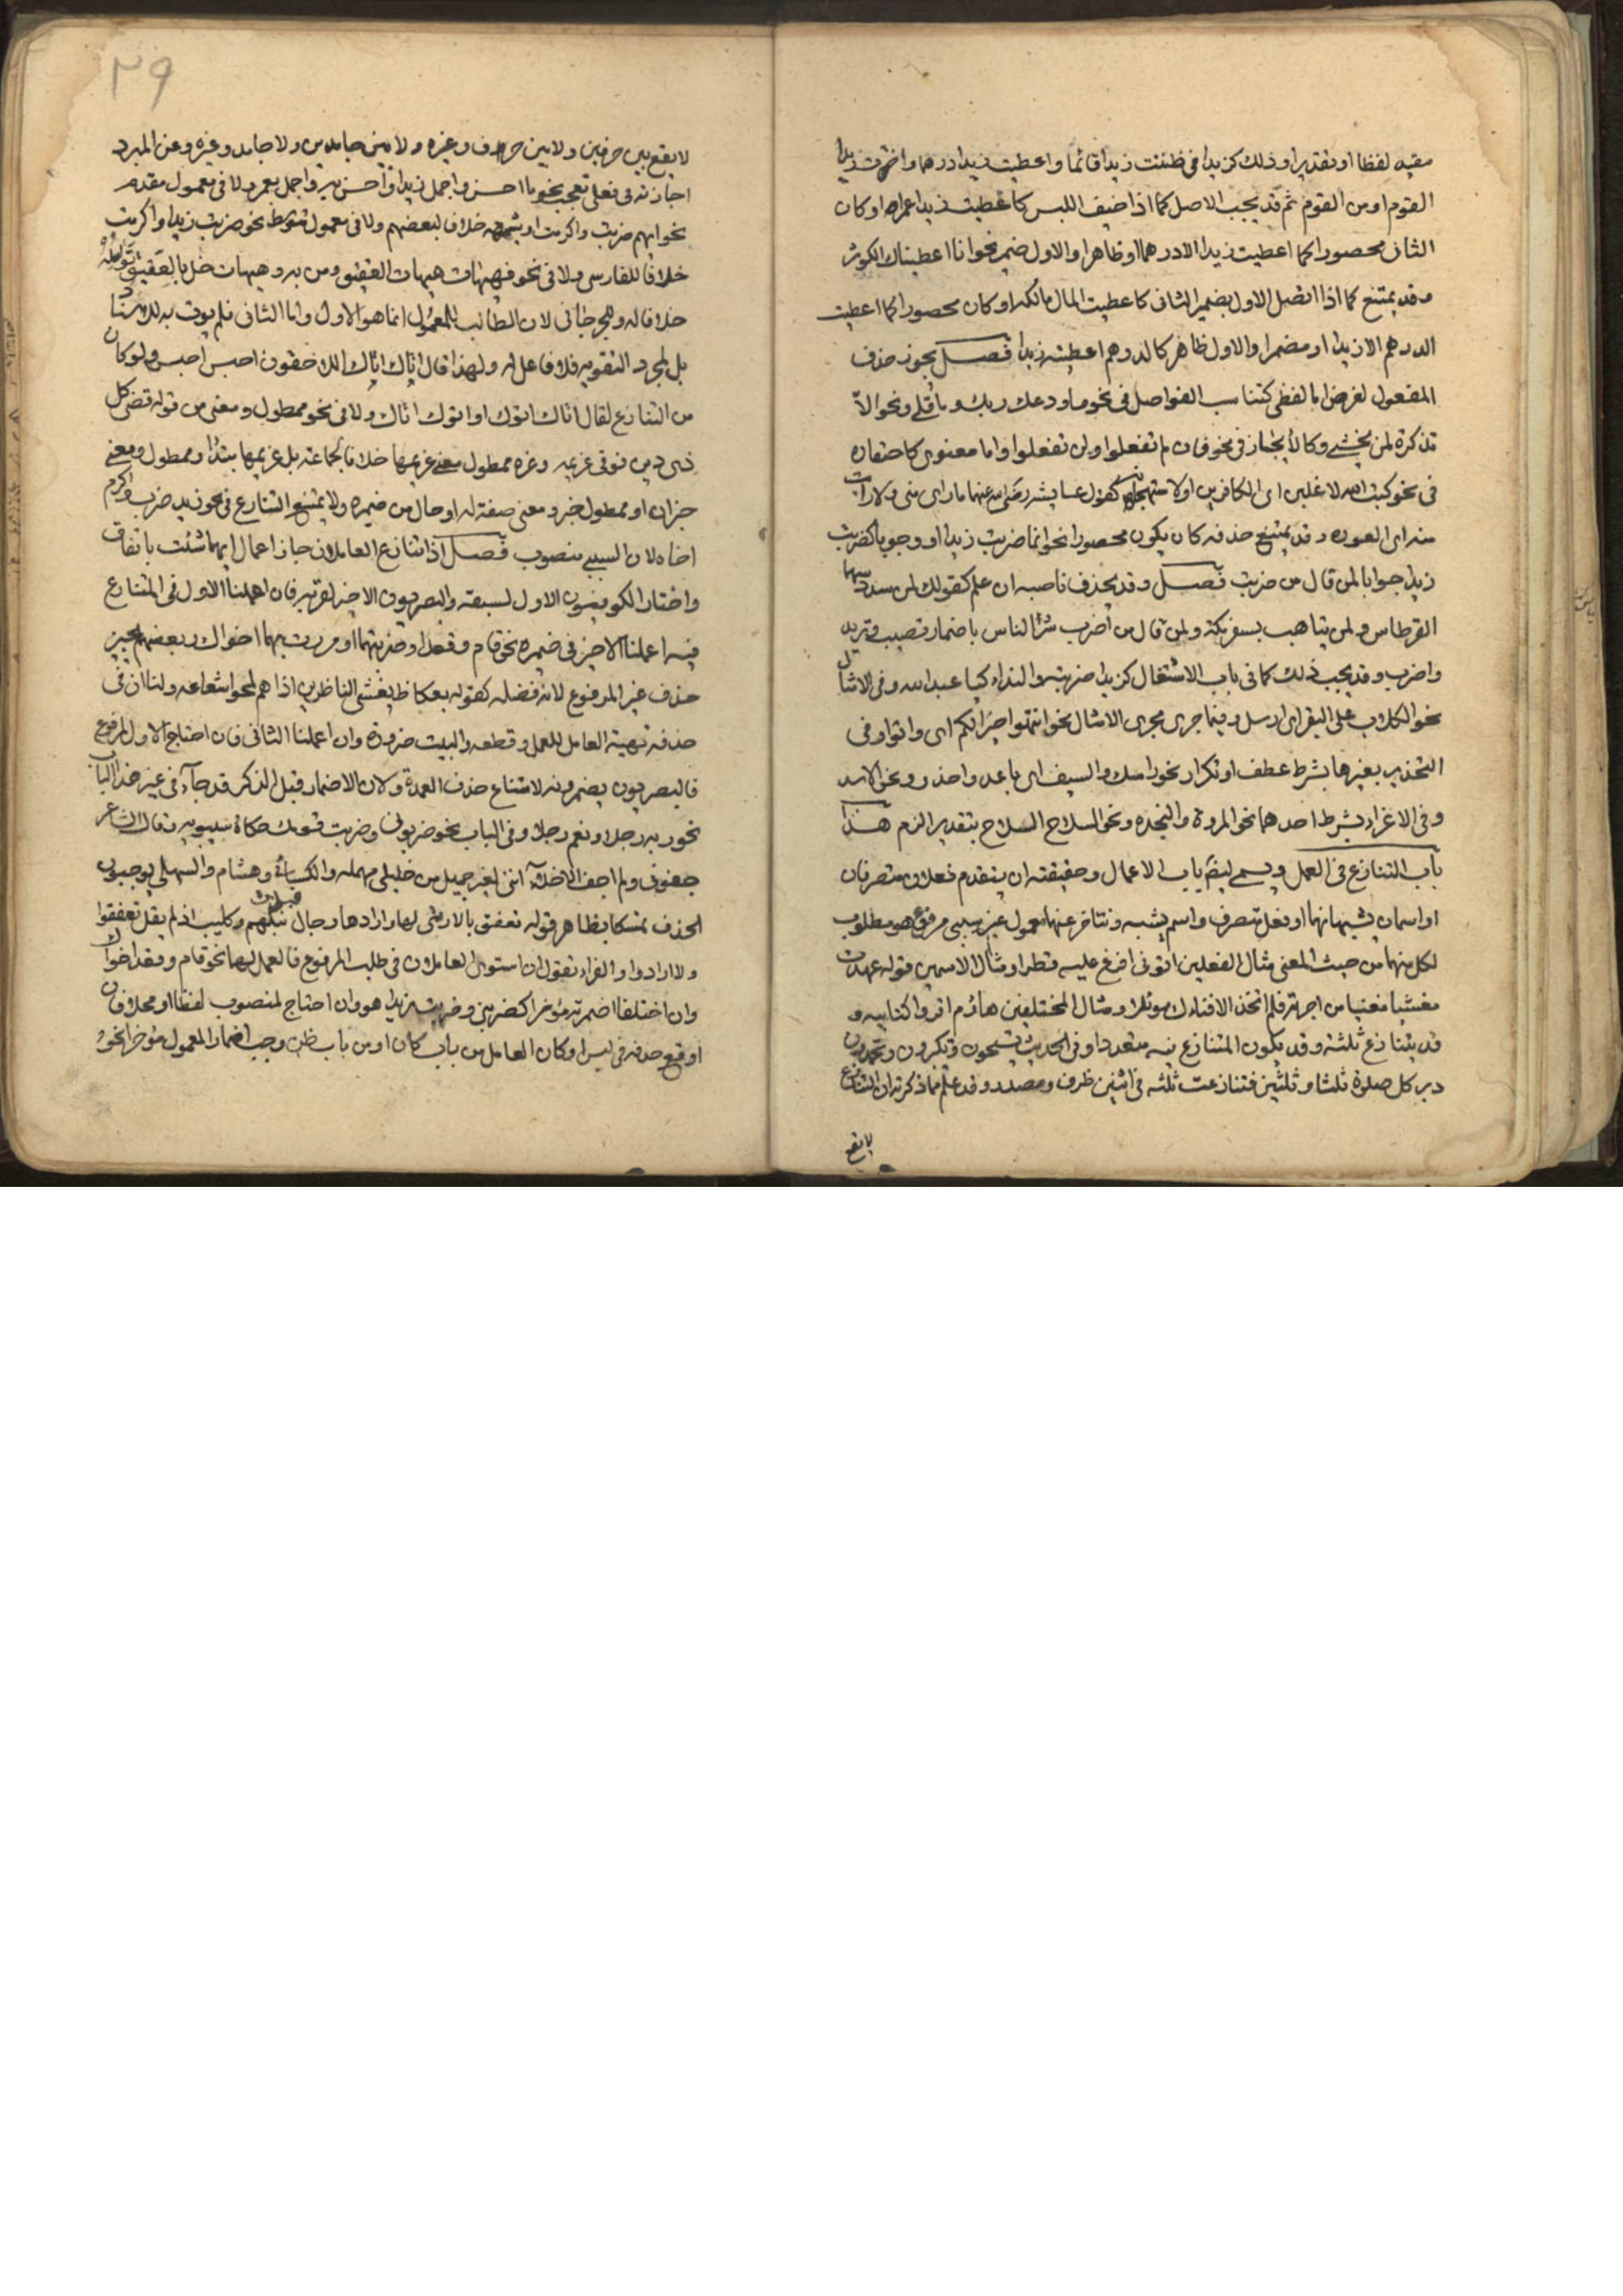 مقيد لفظا او تقديرا وذلك كزيدا في ظننت زيدا قائما واعطيت زيدا درهما واخترت زيدا
القوم او من القوم ثم قد يجب الاصل كما اذا خيف اللبس كاعطيت زيدا عمرا او كان
الثاني محصورا كما اعطيت زيدا الا درهما او ظاهرا والاول ضمير نحو انا اعطيناك الكوثر
وقد يمتنع كما اذا اتصل الاول بضمير الثاني كاعطيت المال مالكه او كان محصورا كما اعطيت
الدرهم الا زيدا او مضمرا والاول ظاهر كالدرهم اعطيته زيدا فصل يجوز حذف
المفعول لغرض اما لفظي كتناسب الفواصل في نحو ما ودعك ربك وما قلى ونحو الا
تذكرة لمن يخشى وكالايجاز في نحو فان لم تفعلوا ولن تفعلوا واما معنوي كاحتقاره
في نحو كتب الله لاغلبن اي الكافرين او لاستهجانه كقول عايشه رضي الله عنها ما راى مني ولا رايت
منه اي العوره وقد يمتنع حذفه كان يكون محصورا نحو انما ضربت زيدا او وجوبا كضربت
زيدا جوابا لمن قال من ضربت فصل وقد يحذف ناصبه ان علم كقولك لمن سدد سهما
القرطاس ولمن يتاهب بسفر مكة ولمن قال من اضرب شر الناس باضمار تصيب وتريد
واضرب وقد يجب ذلك كما في باب الاشتغال كزيدا ضربته والنداء كيا عبد الله وفي الامثال
نحو الكلاب على البقر اي ارسل وفيما جرى مجرى الامثال نحو انتهوا خيرا لكم اي واتوا وفي
التحذير بغيرها بشرط عطف او تكرار نحو راسك والسيف اي باعد واحذر ونحو الاسد
وفي الاغراء بشرط احدهما نحو المروة والنجده ونحو السلاح السلاح بتقدير الزم هذا
باب التنازع في العمل ويسمى ايضا باب الاعمال وحقيقته ان يتقدم فعلان متصرفان
او اسمان يشبهانهما او فعل متصرف واسم يشبهه ونتاخر عنهما معمول غير سببي مرفوع هو مطلوب
لكل منهما من حيث المعنى مثال الفعلين اتوني افرغ عليه قطرا ومثال الاسمين قوله عهدت
مغيثا مغنيا من اجرته فلم اتخذ الا فناءك موئلا ومثال المختلفين هاؤم اقروا كتابيه و
قد يتنازع ثلثة وقد يكون المتنازع فيه متعددا وفي الحديث تسبحون وتكبرون وتحمدون
دبر كل صلوة ثلثا وثلثين فتنازعت ثلثه في اثنين ظرف ومصدر وقد علم مما ذكرته ان التنازع
لا يقع
٣٩
لا يقع بين حرفين ولا بين حرف وغيره ولا بين جامدين ولا جامد وغيره وعن المبرد
اجازته في فعلي تعجب نحو ما احسن واجمل زيدا واحسن به واجمل بعمرو ولا في معمول مقدم
نحو ايهم ضربت واكرمت او شتمته خلاف لبعضهم ولا في معمول متوسط نحو ضربت زيدا واكرمت
خلافا للفارسي ولا في نحو فهيهات هيهات العقيق ومن به وهيهات خل بالعقيق نواصله
خلافا له وللجرجاني لان الطالب للمعمول انما هو الاول واما الثاني فلم يوت به للاسناد
بل لمجرد التقويه فلا فاعل له ولهذا قال اتاك اتاك اللاحقون احبس احبس ولو كان
من التنازع لقال اتاك اتوك او اتوك اتاك ولا في نحو ممطول ومعنى من قوله قضى كل
ذي دين فوفى غريمه وعزه ممطول معنى غريمها خلافا لجماعته بل غريمها مبتدا وممطول ومعنى
خبران او ممطول خبر ومعنى صفة له او حال من ضميره ولا يمتنع التنازع في نحو زيد ضرب واكرم
اخاه لان السببي منصوب فصل اذا تنازع العاملان جاز اعمال ايهما شئت باتفاق
واختار الكوفيون الاول لسبقه والبصريون الاخير لقربه فان اعملنا الاول في المتنازع
فيه اعملنا الاخير في ضميره نحو قام وقعدا او ضربتهما او مررت بهما اخواك وبعضهم يجيز
حذف غير المرفوع لانه فضله كقوله بعكاظ يغشي الناظرين اذا هم لمحوا شعاعه ولنا ان في
حذفه تهيئة العامل للعمل وقطعه والبيت ضرورة وان اعملنا الثاني فان احتاج الاول لمرفوع
فالبصريون يضمرونه لامتناع حذف العمدة ولان الاضمار قبل الذكر قد جآء في غير هذا الباب
نحو ربه رجلا ونعم رجلا وفي الباب نحو ضربوني وضربت قومك حكاه سيبويه وقال الشاعر
جفوني ولم اجف الاخلاء انني لغير جميل من خليلي مهمله والكسائي وهشام والسهيلي يوجبون
الحذف تمسكا بظاهر قوله تعفق بالارطى لها وارادها رجال فبذت نبلهم وكليب اذ لم يقل تعفقوا
ولا ارادوا والفراء يقول ان استوى العاملان في طلب المرفوع فالعمل لهما نحو قام وقعد اخواك
وان اختلفا اضمرته موخرا كضربني وضربت زيدا هو وان احتاج لمنصوب لفظا او محلا فان
اوقع حذفه في لبس او كان العامل من باب كان او من باب ظن وجب اضمار المعمول مؤخرا نحو